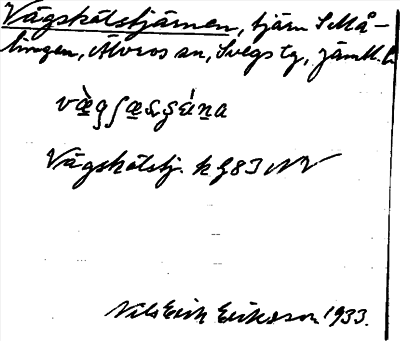 Vägskälstjärnen, tjärn S Må-
lingen, Älvros sn, Svegs tg, Jämtl. l.
Vägskälstj. k G83 NV
Nils Erik Eriksson 1933.